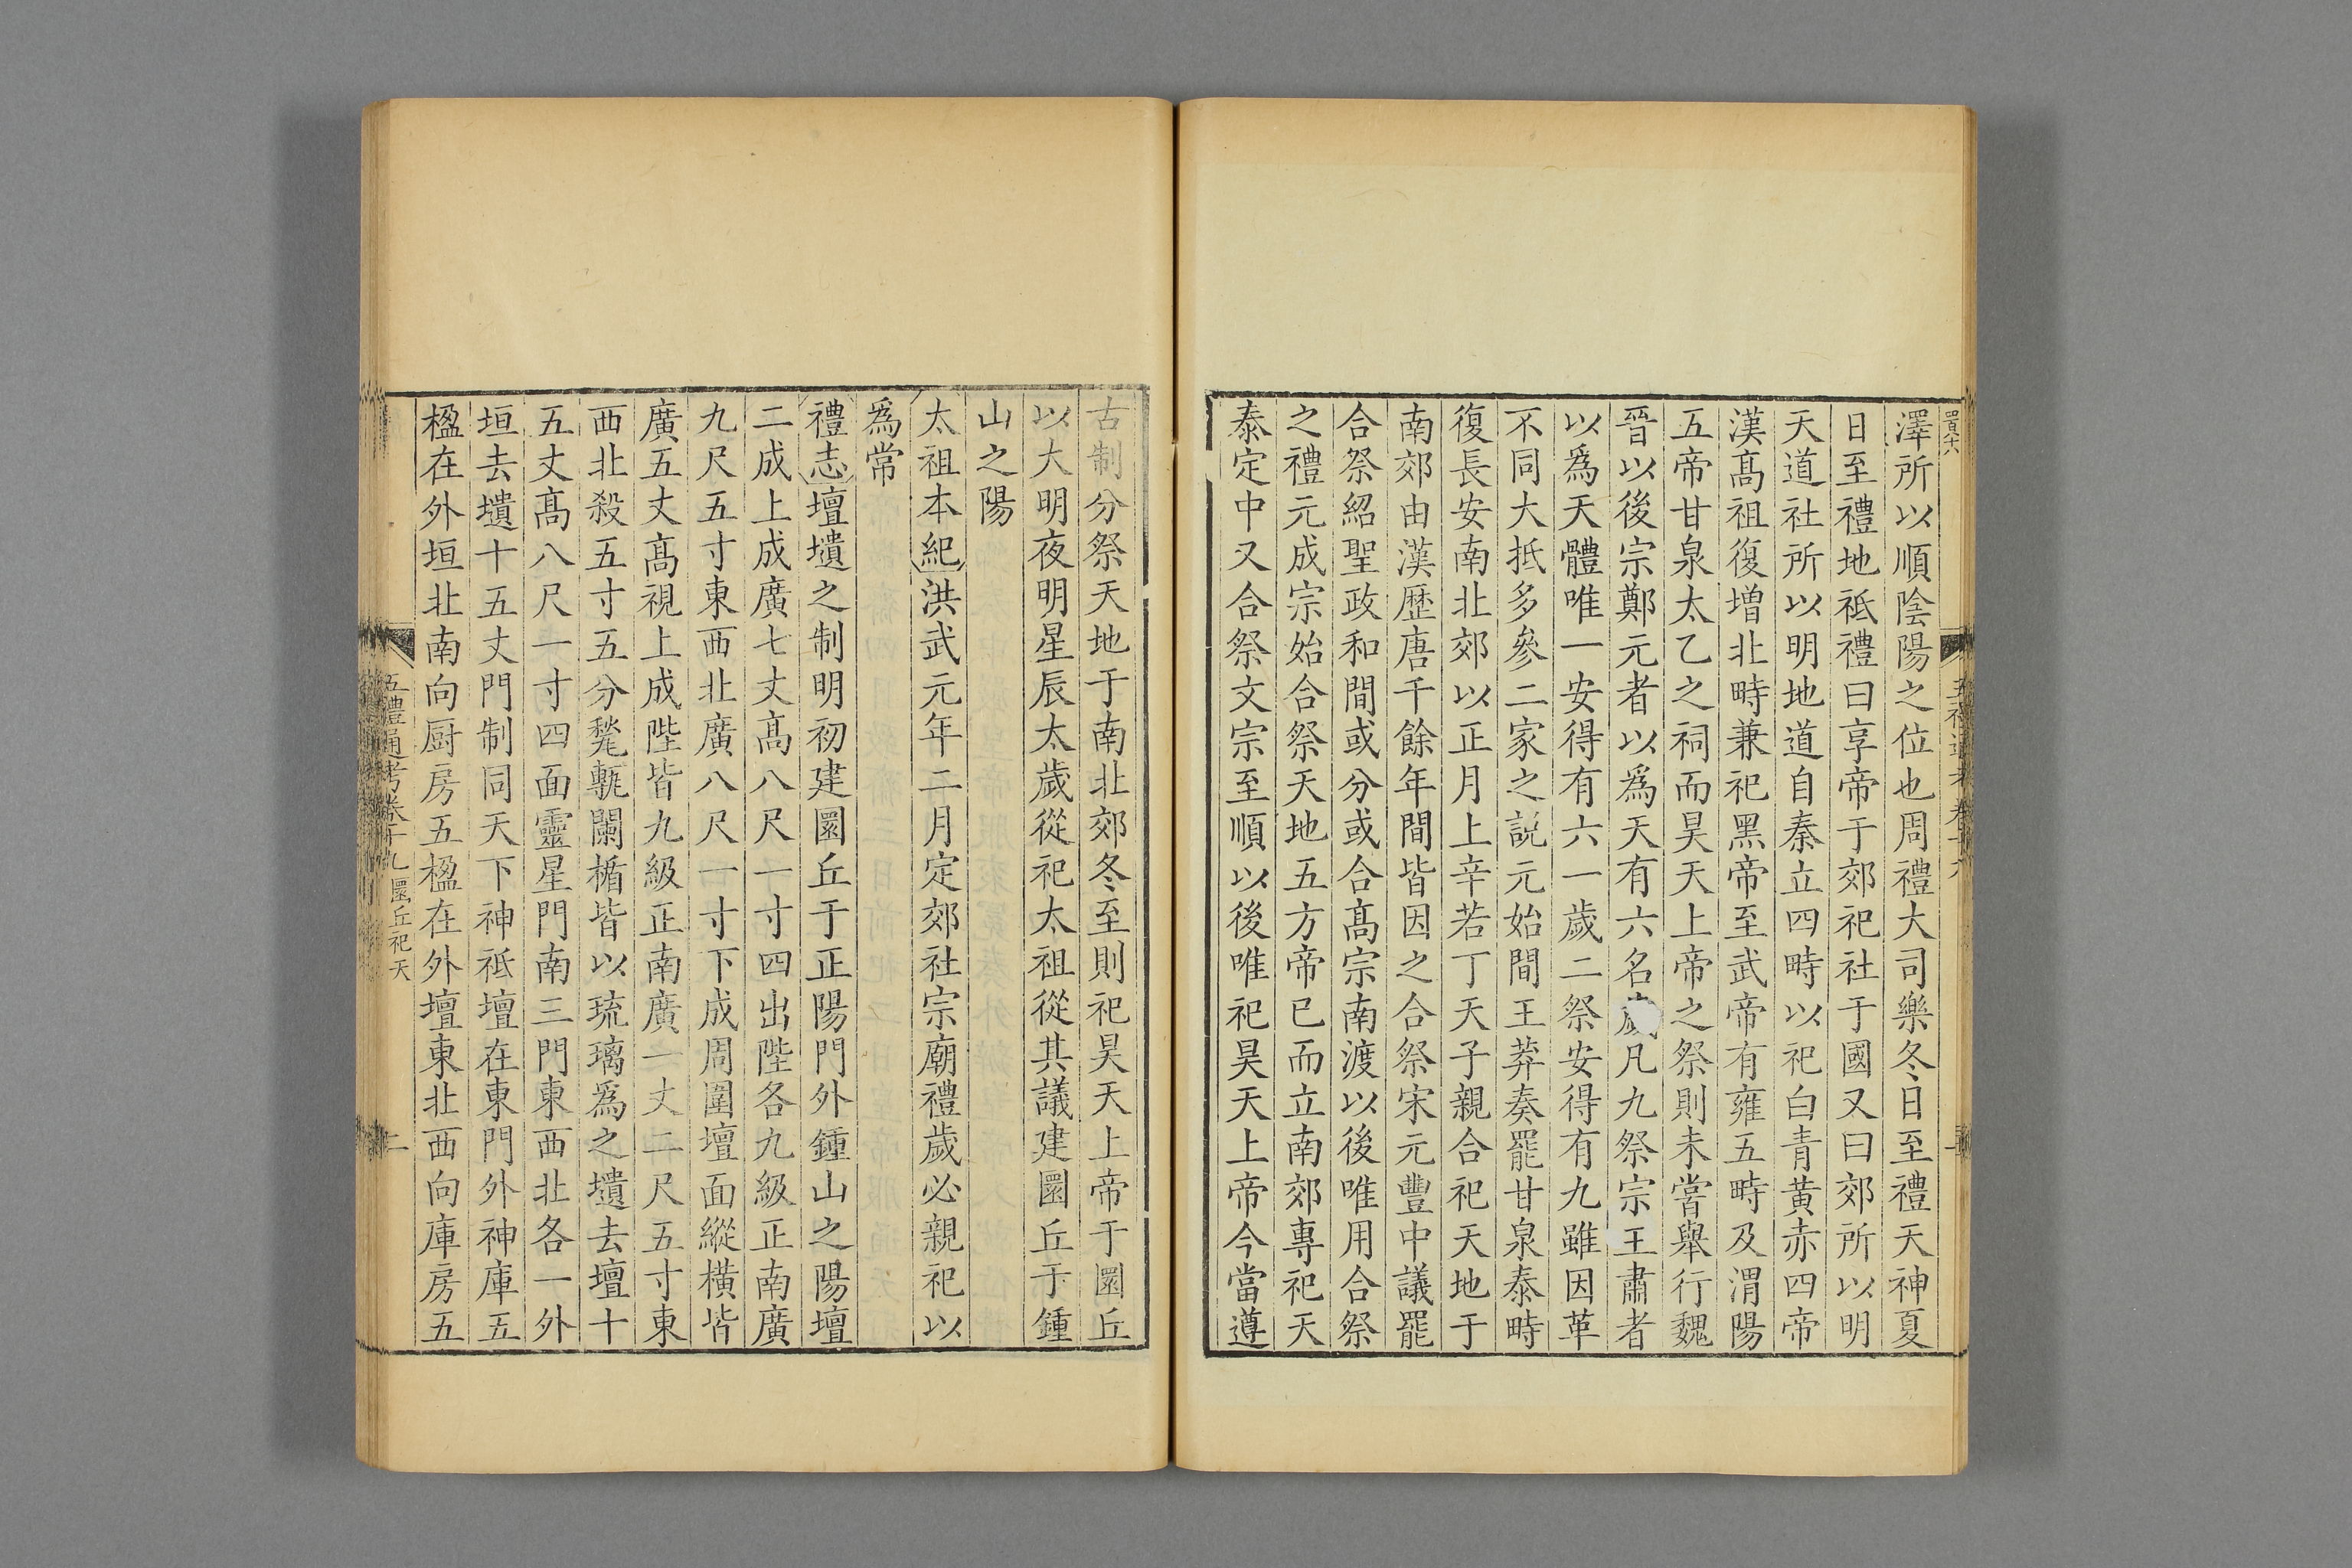 澤所以順陰陽之位也周禮大司樂冬日至禮天神夏
日至禮地祗禮曰享帝于郊祀社于國又曰郊所以明
天道社所以明地道自秦立四畤以祀白青黄赤四帝
漢髙祖復增北畤兼祀黑帝至武帝有雍五畤及渭陽
五帝甘泉太乙之祠而昊天上帝之祭則未嘗舉行魏
晉以後宗鄭元者以爲天有六名歲凡九祭宗王肅者
以爲天體唯一安得有六一歲二祭安得有九雖因革
不同大抵多參二家之説元始間王莽奏罷甘泉泰畤
復長安南北郊以正月上辛若丁天子親合祀天地于
南郊由漢歴唐千餘年間皆因之合祭宋元豐中議罷
合祭紹聖政和間或分或合髙宗南渡以後唯用合祭
之禮元成宗始合祭天地五方帝已而立南郊專祀天
泰定中又合祭文宗至順以後唯祀昊天上帝今當遵
古制分祭天地于南北郊冬至則祀昊天上帝于圜丘
以大明夜明星辰太歲從祀太祖從其議建圜丘于鍾
山之陽
太祖本紀洪武元年二月定郊社宗廟禮歲必親祀以
爲常
禮志壇壝之制明初建圜丘于正陽門外鍾山之陽壇
二成上成廣七丈髙八尺一寸四出陛各九級正南廣
九尺五寸東西北廣八尺一寸下成周圍壇面縱橫皆
廣五丈髙視上成陛皆九級正南廣一丈二尺五寸東
西北殺五寸五分甃甎闌楯皆以琉璃爲之壝去壇十
五丈髙八尺一寸四面靈星門南三門東西北各一外
垣去壝十五丈門制同天下神祗壇在東門外神庫五
楹在外垣北南向厨房五楹在外壇東北西向庫房五
五禮通考卷十九 圜丘祀天
二